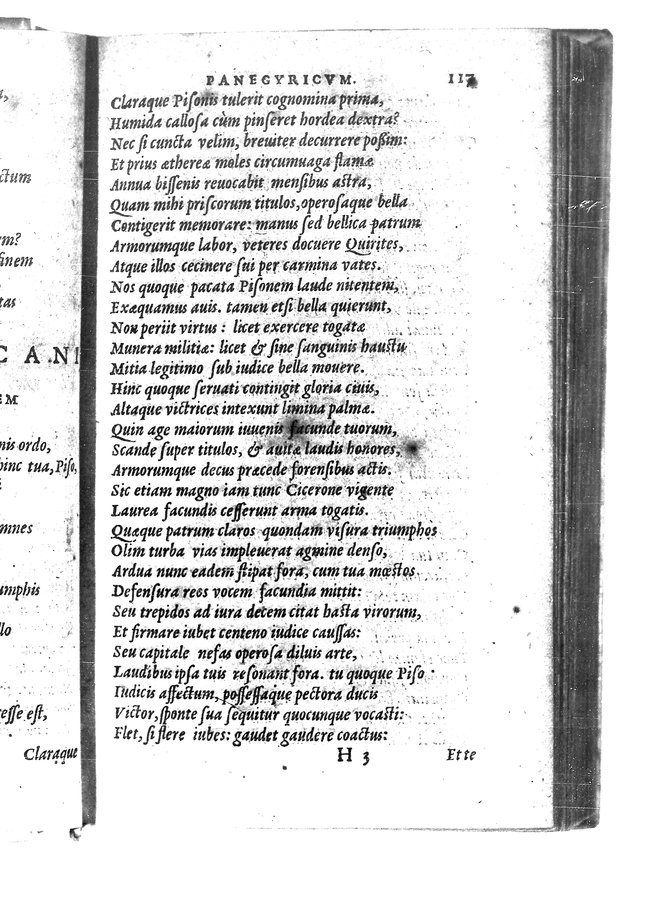 a,
ctum
m?
finem
tas
C A N
EM
nis ordo,
hinc tua, Piso,
omnes
umphis
lo
resse est,
Claraque
PANEGYRICVM. 117
Claraque Pisonis tulerit cognomina prima,
Humida callosa cùm pinseret hordea dextra?
Nec si cuncta velim, breuiter decurrere poßim:
Et prius æthereæ moles circumuaga flamæ
Annua bissenis reuocabit mensibus astra,
Quam mihi priscorum titulos, operosaque bella
Contigerit memorare: manus sed bellica patrum
Armorumque labor, veteres docuere Quirites,
Atque illos cecinere sui per carmina vates.
Nos quoque pacata Pisonem laude nitentem,
Exæquamus auis. tamen etsi bella quierunt,
Non periit virtus : licet exercere togatæ
Munera militiæ: licet & sine sanguinis haustu
Mitia legitimo sub iudice bella mouere.
Hinc quoque seruati contingit gloria ciuis,
Altaque victrices intexunt limina palmæ.
Quin age maiorum iuuenis facunde tuorum,
Scande super titulos, & auitæ laudis honores,
Armorumque decus præcede forensibus actis.
Sic etiam magno iam tunc Cicerone vigente
Laurea facundis cesserunt arma togatis.
Quæque patrum claros quondam visura triumphos
Olim turba vias impleuerat agmine denso,
Ardua nunc eadem stipat fora, cum tua mœstos
Defensura reos vocem facundia mittit:
Seu trepidos ad iura decem citat hasta virorum,
Et firmare iubet centeno iudice caussas:
Seu capitale nefas operosa diluis arte,
Laudibus ipsa tuis resonant fora. tu quoque Piso
Iudicis affectum, possessaque pectora ducis
Victor, sponte sua sequitur quocunque vocasti:
Flet, si flere iubes: gaudet gaudere coactus:
H 3 Ette